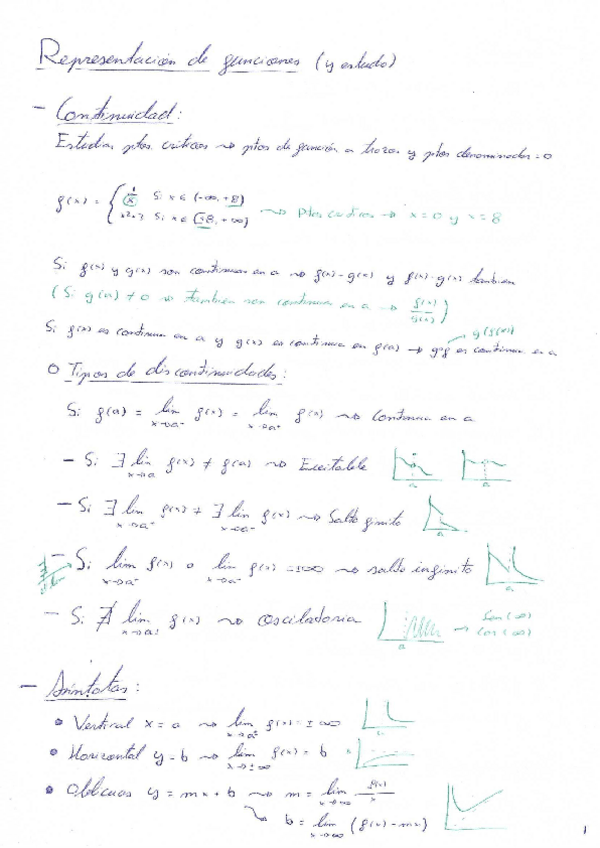 Representación de funciones (y estudio)
- Continuidad:
Estudiar ptos críticos ~> ptos de función a trozos y ptos denominador = 0
f(x) = { 1/x Si x ∈ (-∞, +8)
Si x ∈ [+8, +∞) ~> Ptos críticos -> x=0 y x=8
Si f(x) y g(x) son continuas en a ~> f(x)·g(x) y también
(Si g(a) ≠ 0 ~> también son continuas en a -> f(x)/g(x))
g(f(x))
Si f(x) es continua en a y g(x) es continua en f(a) -> g∘f es continua en a
o Tipos de discontinuidades:
Si f(a) = lim x->a⁻ f(x) = lim x->a⁺ f(x) ~> Continua en a
- Si ∃ lim x->a f(x) ≠ f(a) ~> Evitable
a a
- Si ∃ lim x->a⁻ f(x) ≠ ∃ lim x->a⁺ f(x) ~> Salto finito
a
- Si lim x->a⁻ f(x) o lim x->a⁺ f(x) = ±∞ ~> salto infinito
a
- Si ∄ lim x->a f(x) ~> Osciladoria -> Sen(∞)
a cos(∞)
- Asíntotas:
• Vertical x = a ~> lim x->a f(x) = ±∞
• Horizontal y = b ~> lim x->±∞ f(x) = b
• Oblicuas y = mx + b ~> m = lim x->∞ f(x)/x
b = lim x->∞ (f(x) - mx)
1